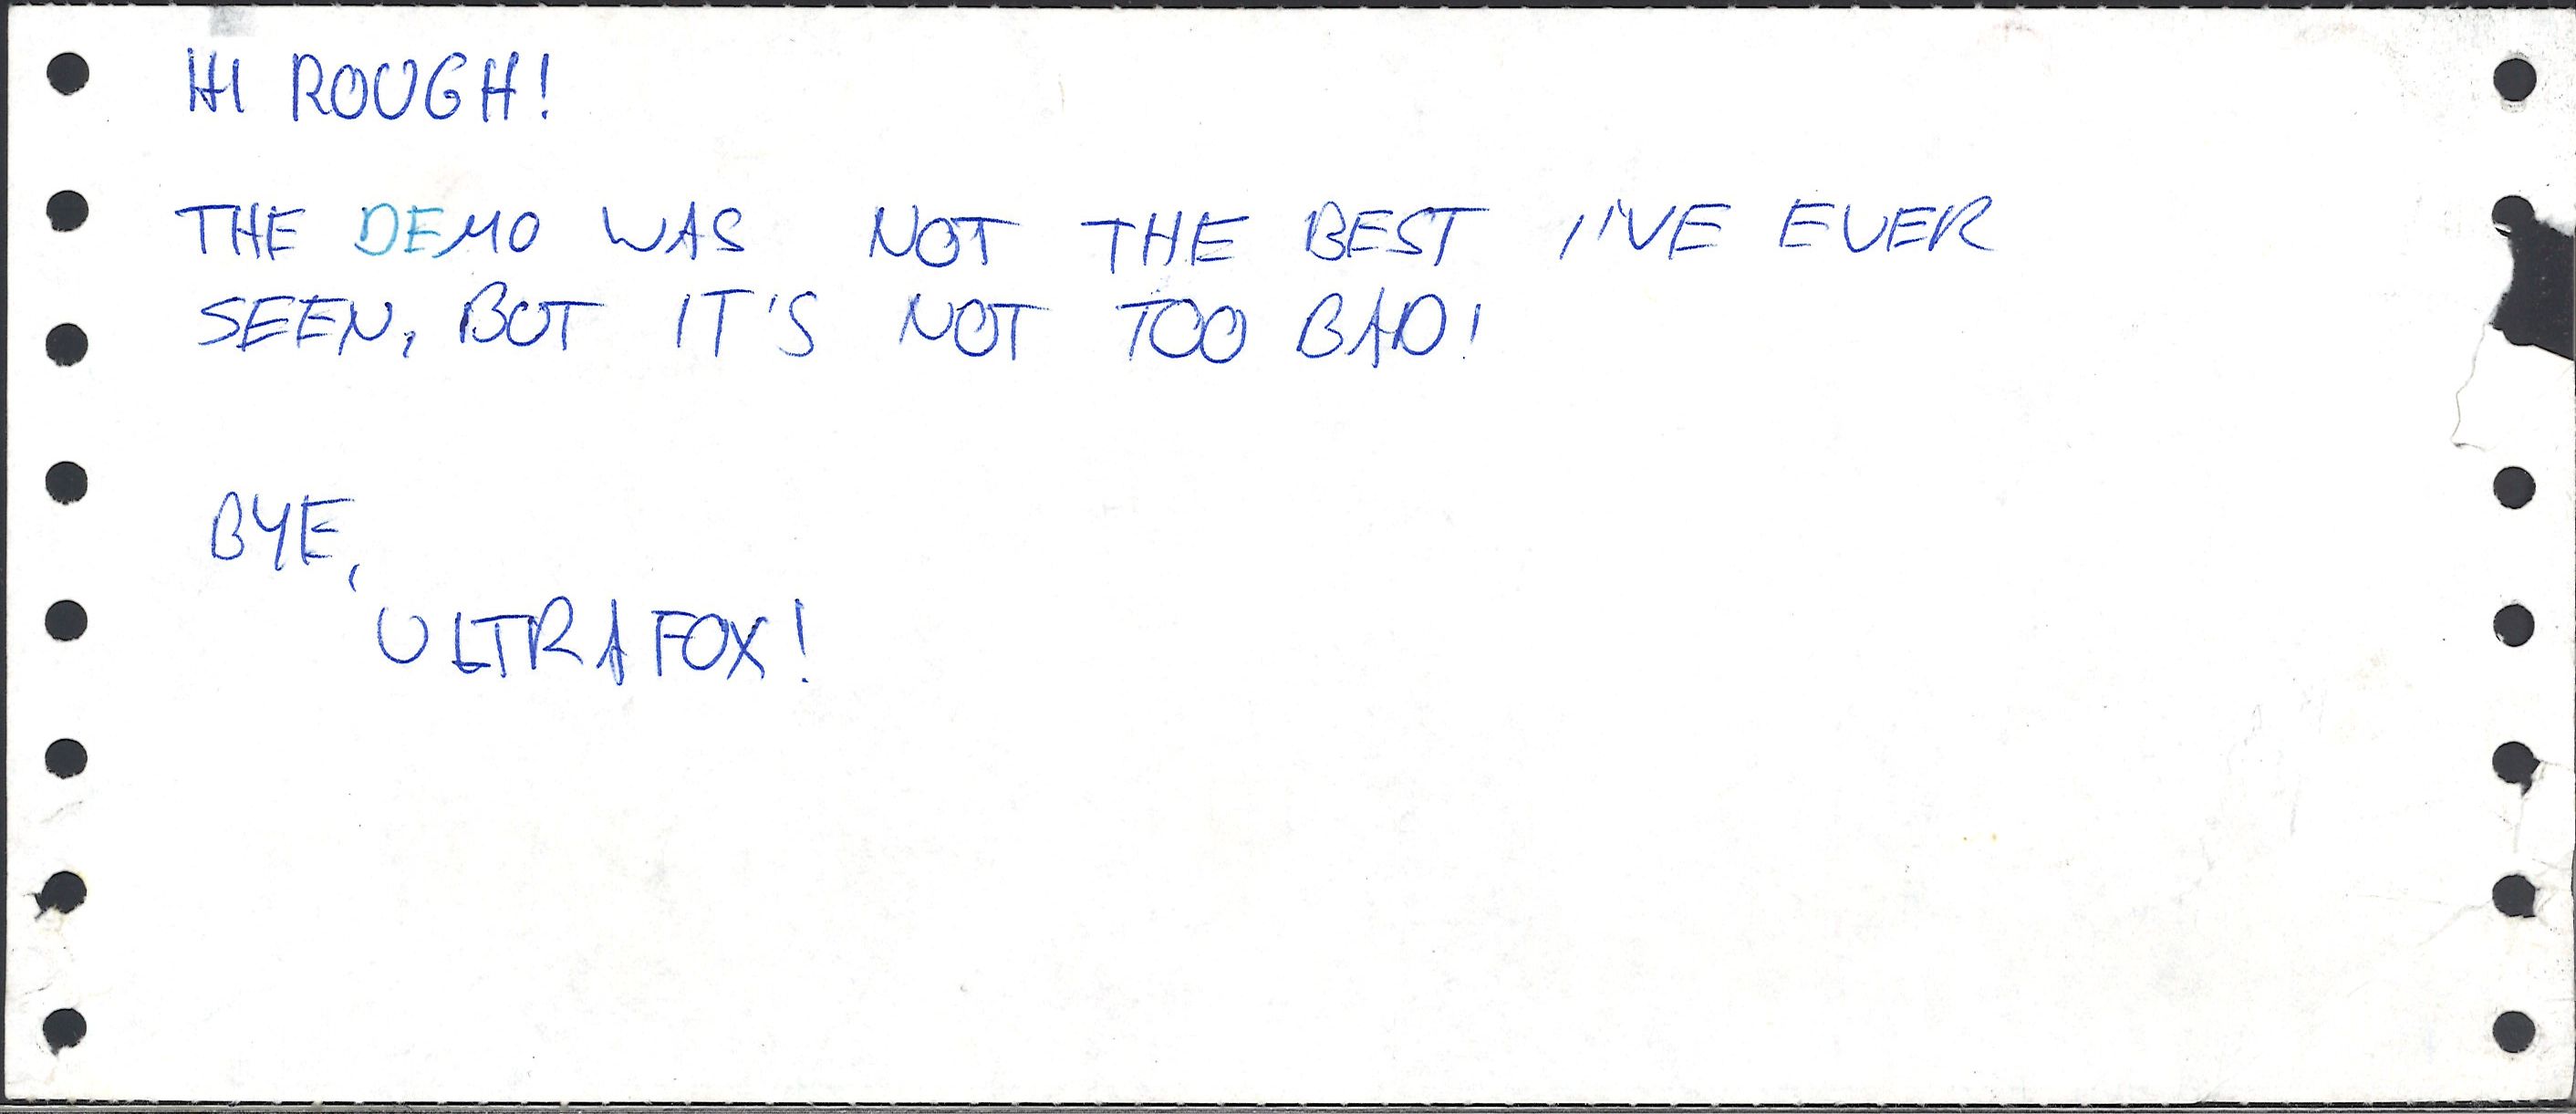 HI ROUGH!
THE DEMO WAS NOT THE BEST I'VE EVER
SEEN, BOT IT'S NOT TOO BAD!
BYE,
ULTRAFOX!